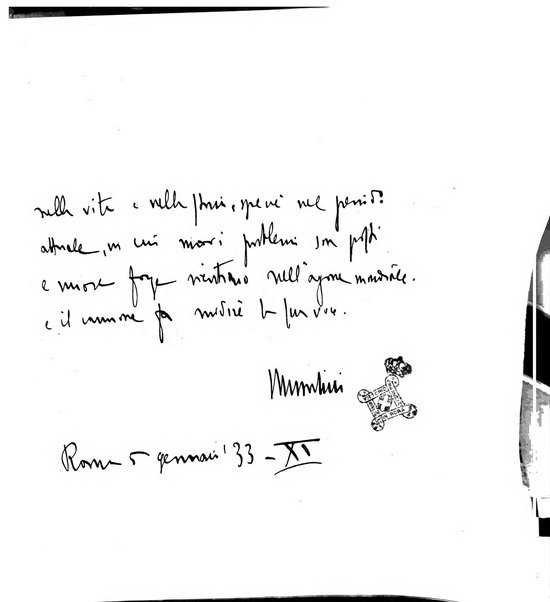 nella vita e nella storia, specie nel periodo
attuale, in cui nuovi problemi son posti
e nuove forze rientrano nell'agone mondiale.
e il cannone fa udire la sua voce.
Mussolini
Roma 5 gennaio '33 - XI